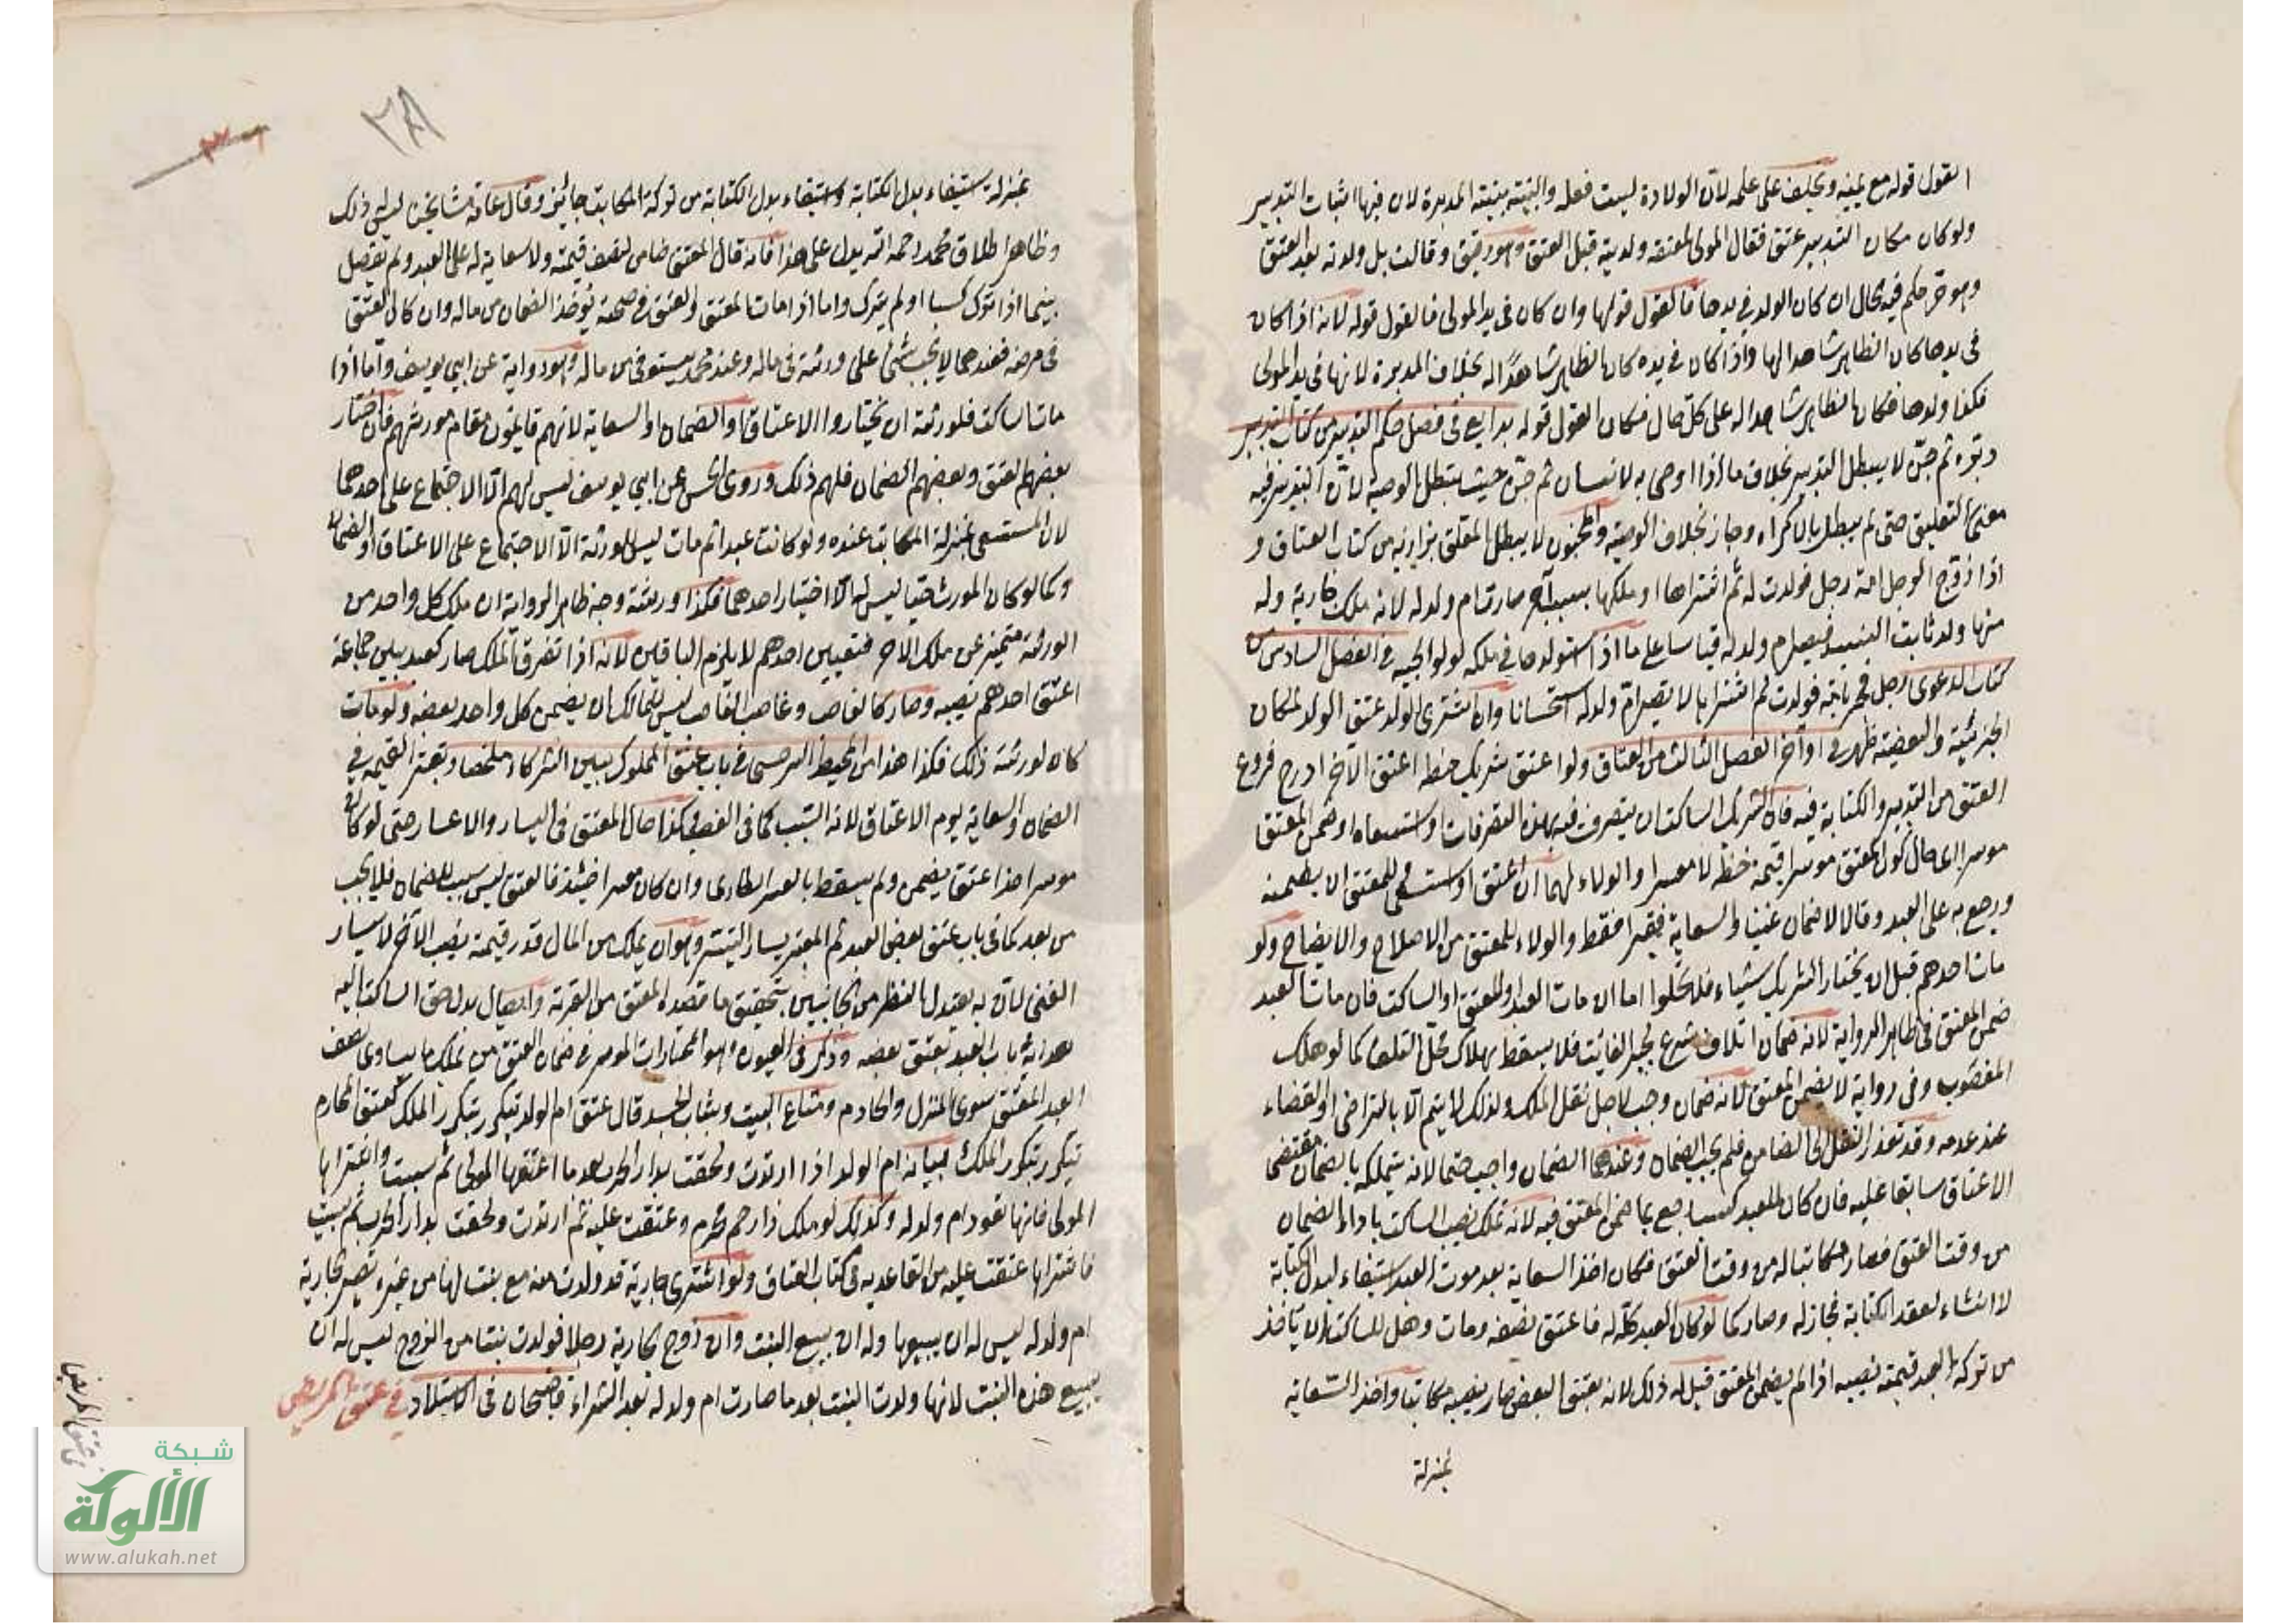 القول قوله مع يمينه ويحلف على علمه لأن الولادة ليست فعله والبينة بينة المدبرة لان فيها اثبات التدبير
ولو كان مكان التدبير عتق فقال المولى لمعتقه ولدتيه قبل العتق وهو رقيق وقالت بل ولدته بعد العتق
وهو حر حكم فيه الحال ان كان الولد في يدها فالقول قولها وان كان في يد المولى فالقول قوله لانه اذا كان
في يدها كان الظاهر شاهدا لها واذا كان في يده كان الظاهر شاهدا له بخلاف المدبرة لانها في يد المولى
فكذا ولدها فكان الظاهر شاهدا له على كل حال فكان القول قوله بدايع في فصل حكم التدبير من كتاب التدبير
دبره ثم جن لا يبطل التدبير بخلاف ما اذا اوصى به لانسان ثم جن حيث تبطل الوصية لأن التدبير فيه
معنى التعليق حتى لم يبطل بالاكراه وجاز بخلاف الوصية والجنون لا يبطل المعلق بزازيه من كتاب العتاق و
اذا زوج الرجل امة رجل فولدت له ثم اشتراها او ملكها بسبب آخر صارت ام ولد له لانه ملك جارية وله
منها ولد ثابت النسب فيصير ام ولد له قياسا على ما اذا استولدها في ملكه لولوالجيه في الفصل السادس من
كتاب الدعوى رجل فجر بامة فولدت ثم اشتراها لا تصير ام ولد له استحسانا وان اشترى الولد عتق الولد لمكان
الجزئية والبعضية ظهيريه في اواخر الفصل الثالث من العتاق ولو اعتق شريك حظه اعتق الآخر ادرج فروع
العتق من التدبير والكتابة فيه فان الشريك الساكت ان يتصرف فيه بهذه التصرفات او استسعاه او ضمن المعتق
موسرا اي حال كون المعتق موسرا قيمة حظه لا معسرا والولاء لهما ان اعتق او استسعى وللمعتق ان يضمنه
ورجع به على العبد وقالا لا ضمان غنيا والسعاية فقيرا فقط والولاء للمعتق من الاصلاح والايضاح ولو
مات احدهم قبل ان يختار الشريك شيئا فلا يخلوا اما ان مات العبد او المعتق او الساكت فان مات العبد
ضمن المعتق في ظاهر الرواية لانه ضمان اتلاف شرع لجبر الفائت فلا يسقط بهلاك محل التلف كما لو هلك
المغصوب وفي رواية لا يضمن المعتق لانه ضمان وجب لاجل نقل الملك ولذلك لا يتم الا بالتراضي او القضاء
عند عدمه وقد تعذر النقل الى الضامن فلم يجب الضمان وعندهما الضمان واجب حتما لانه يتملكه بالضمان مقتضى
الاعتاق سابقا عليه فان كان للعبد كسب رجع بما ضمن المعتق فيه لانه تملك نصيب الساكت باداء الضمان
من وقت العتق فصار مكاتبا له من وقت العتق فكان اخذ السعاية بعد موت العبد استيفاء لبدل الكتابة
لا انشاء لعقد الكتابة فجاز له وصار كما لو كان العبد كله له فاعتق نصفه ومات وهل للساكت ان ياخذ
من تركة العبد قيمة نصيبه اذا لم يضمن المعتق قيل له ذلك لانه بعتق البعض صار نصيبه مكاتبا واخذ السعاية
بمنزلة
بمنزلة استيفاء بدل الكتابة واستيفاء بدل الكتابة من تركة المكاتب جائز وقال عامة مشايخنا ليس له ذلك
وظاهر اطلاق محمد رحمه الله يدل على هذا فانه قال المعتق ضامن لنصف قيمته ولا سعاية له على العبد ولم يفصل
بينما اذا ترك كسبا او لم يترك واما اذا مات المعتق والعتق في صحته يؤخذ الضمان من ماله وان كان العتق
في مرضه فعندهما لا يجب شئ على ورثته في ماله وعند محمد يستوفى من ماله وهو رواية عن ابي يوسف واما اذا
مات الساكت فلورثته ان يختاروا الاعتاق او الضمان او السعاية لانهم قايمون مقام مورثهم فان اختار
بعضهم العتق وبعضهم الضمان فلهم ذلك وروى الحسن عن ابي يوسف ليس لهم الا الاجتماع على احدهما
لان المستسعى بمنزلة المكاتب عنده ولو كاتب عبدا ثم مات ليس للورثة الا الاجتماع على الاعتاق او الضمان
وكما لو كان المورث حيا ليس له الا اختيار احدهما فكذا ورثته وجه ظاهر الرواية ان ملك كل واحد من
الورثة متميز عن ملك الاخر فتعيين احدهم لا يلزم الباقين لانه اذا تفرق الملك صار كعبد بين جماعة
اعتق احدهم نصيبه وصار كالغاصب وغاصب الغاصب ليس للمالك ان يضمن كل واحد بعضه ولو مات
كان لورثته ذلك فكذا هذا من المحيط السرخسي في باب عتق المملوك بين الشركاء ملخصا ويعتبر القيمة في
الضمان والسعاية يوم الاعتاق لانه السبب كما في الغصب وكذا حال المعتق في اليسار والاعسار حتى لو كان
موسرا حين اعتق يضمن ولم يسقط بالعسر الطارى وان كان معسرا حينئذ فالعتق ليس بسبب للضمان فلا يجب
من بعد كما في باب عتق بعض العبد ثم المعتبر يسار التيسر وهو ان يملك من المال قدر قيمة نصيب الآخر لا يسار
الغنى لأن به يعتدل النظر من الجانبين بتحقيق ما قصده المعتق من القربة وايصال بدل حق الساكت اليه
هدايه باب العبد يعتق بعضه وذكر في العيون وهو المختار ان الموسر في ضمان العتق من يملك ما يساوي نصف
العبد المعتق سوى المنزل والخادم ومتاع البيت وثياب الجسد قال عتق ام الولد يتكرر بتكرر الملك كعتق المحارم
يتكرر بتكرر الملك بيانه ام الولد اذا ارتدت ولحقت بدار الحرب بعد ما اعتقها المولى ثم سبيت واشتراها
المولى فانها تعود ام ولد له وكذلك لو ملك ذا رحم محرم وعتقت عليه ثم ارتدت ولحقت بدار الحرب ثم سبيت
فاشتراها عتقت عليه من القاعديه في كتاب العتاق ولو اشترى جارية قد ولدت منه مع بنت لها من غيره تصير الجارية
ام ولد له ليس له ان يبيعها وله ان يبيع البنت وان زوج الجارية رجلا فولدت بنتا من الزوج ليس له ان
يبيع هذه البنت لانها ولدت البنت بعد ما صارت ام ولد له بعد الشراء قاضيخان في الاستيلاد في عتق المريض
في عتق المريض
شبكة
الألوكة
www.alukah.net